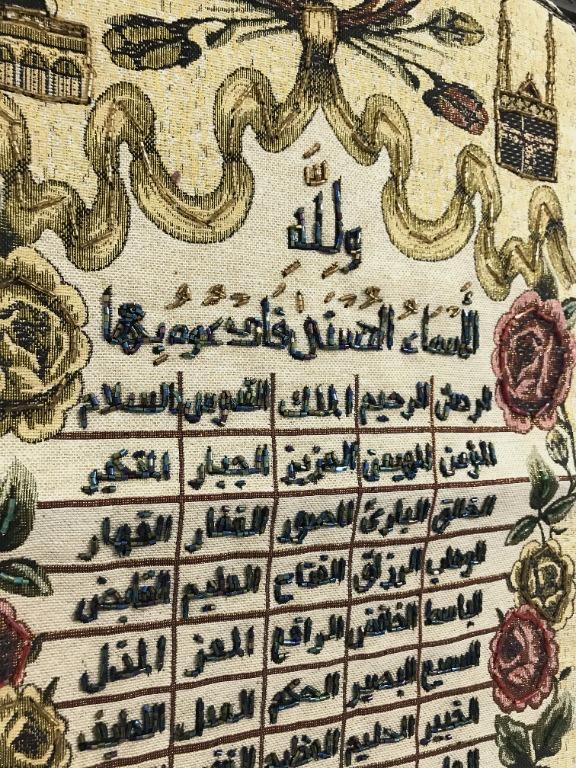 وَلِلَّهِ
الأَسْمَاءُ الحُسْنَى فَادْعُوهُ بِهَا
الرحمن الرحيم الملك القدوس السلام
المؤمن المهيمن العزيز الجبار المتكبر
الخالق البارئ المصور الغفار القهار
الوهاب الرزاق الفتاح العليم القابض
الباسط الخافض الرافع المعز المذل
السميع البصير الحكم العدل اللطيف
الخبير الحليم العظيم